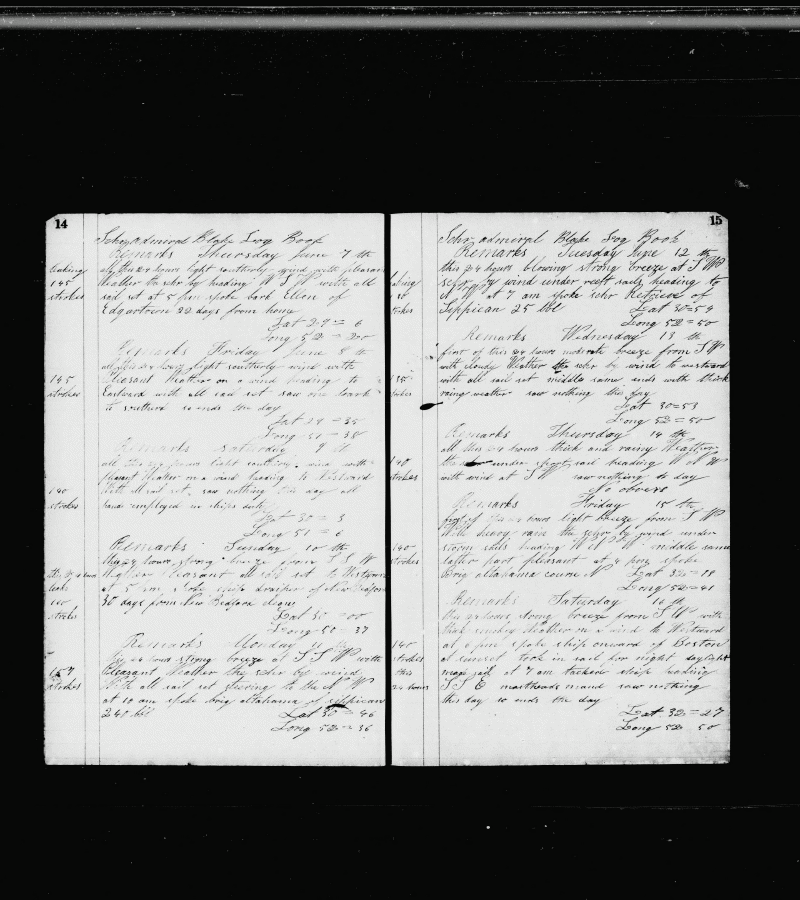 14
Schr admiral Blake Log Book
Remarks Thursday June 7 th
all this 24 hours light southerly wind with pleasant
weather the schr by heading W S W with all
sail set at 5 pm spoke bark Ellen of
Edgartown 22 days from home
Lat 29 = 6
Long 52 = 20
leaking
145
strokes
Remarks Friday June 8 th
all this 24 hours light southerly wind with
pleasant Weather on a wind heading to
Eastward with all sail set saw one bark
to southerd so ends the day
Lat 29 = 35
Long 51 = 38
145
strokes
Remarks Saturday 9 th
all this 24 hours light southerly wind with
pleasant Weather on a wind heading to Eastward
With all sail set saw nothing this day all
hands employed in ships duty
Lat 30 = 3
Long 51 = 6
140
strokes
Remarks Sunday 10 th
this 24 hours strong breeze from S S W
Weather pleasant all sail set to Westward
at 5 pm spoke ship of New Bedford
30 days from New Bedford clean
Lat 30 = 00
Long 50 = 37
this 24 hours
leaks
160
strokes
Remarks Monday 11 th
this 24 hours strong breeze at S S W with
Pleasant Weather the schr by wind
With all sail set steering to the N W
at 10 am spoke brig altahama of sippican
240 bbl
Lat 30 = 46
Long 52 = 36
157
strokes
15
Schr admiral Blake Log Book
Remarks Tuesday June 12 th
this 24 hours blowing strong breeze at S W
schr by wind under reeft sails heading to
at 7 am spoke schr Retrieve of
Sippican 25 bbl
Lat 30 = 54
Long 52 = 50
Remarks Wednesday 13 th
first of this 24 hours moderate breeze from S W
with cloudy Weather the schr by wind to westward
with all sail set middle same ends with thick
rainy weather saw nothing this day
Lat 30 = 53
Long 52 = 50
135
strokes
Remarks Thursday 14 th
all this 24 hours thick and rainy Weather
the schr under short sail heading W N W
with wind at S W saw nothing to day
No observ
140
strokes
Remarks Friday 15 th
first of this 24 hours light breeze from S W
With heavy rain the schr by wind under
storm sails heading W N W middle same
latter part pleasant at 4 pm spoke
Brig altahama course N
Lat 32 = 19
Long 52 = 41
140
strokes
Remarks Saturday 16 th
this 24 hours strong breeze from S W with
thick smokey Weather on a wind to Westward
at 6 pm spoke ship onward of Boston
at sunset took in sail for night daylight
made sail at 7 am tacked ship heading
S S E mastheads mand saw nothing
this day so ends the day
Lat 32 = 27
Long 52 50
140
strokes
this
24 hours